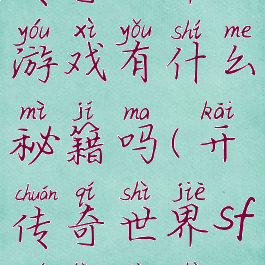 yóu xì yǒu shí me
游戏有什么
mì jí ma kāi
秘籍吗(开
chuán qí shì jiè
传奇世界sf